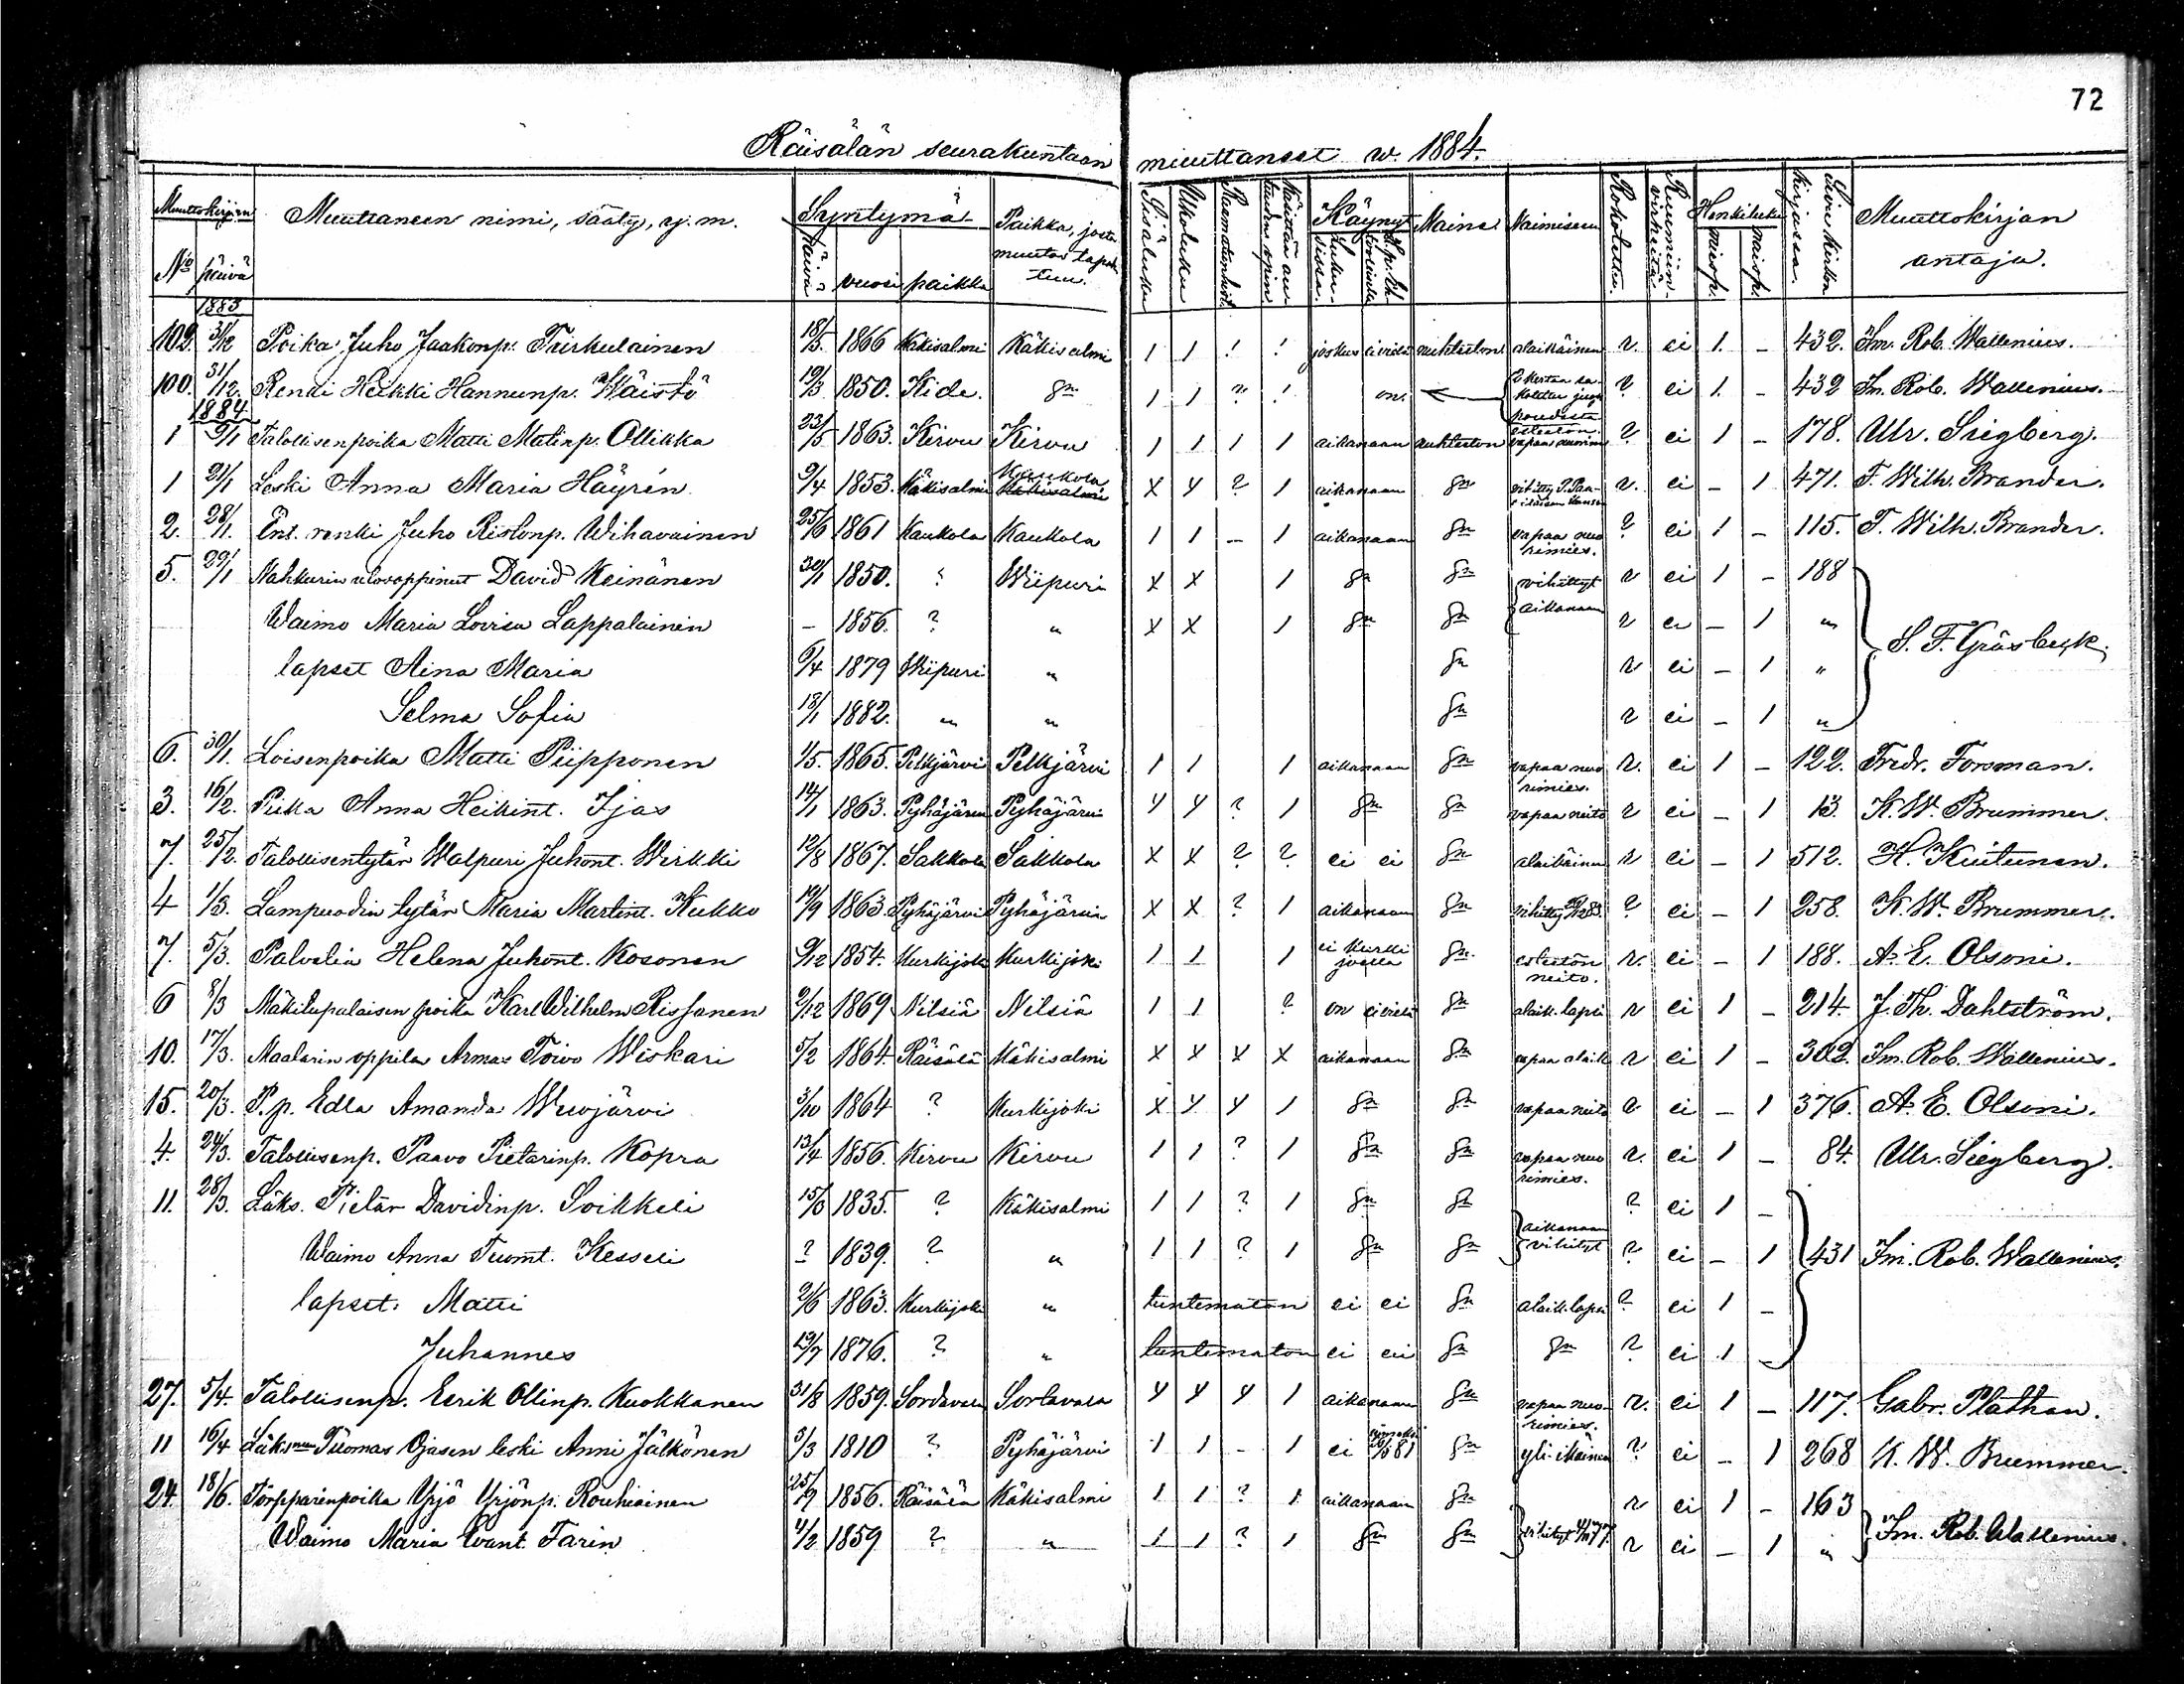 72
Räisälän seurakuntaan muuttaneet w. 1884.
Muuttokirjan Muuttaneen nimi, sääty, y. m. Syntymä Paikka, josta muutos tapahtuu. Sisäluku Ulkoluku Käynyt Maine Naimiseen Rokotettu. Ruumiin virheitä Henkiluku Sivu kirkon kirjassa. Muuttokirjan antaja.
No päivä päivä vuosi paikka miesp. naisp.
1883
102. 31/12 Poika Juho Jaakonp. Turkulainen 18/5. 1866 Käkisalmi Käkisalmi 1 1 ! ! joskus ei vielä nuhteeton alaikäinen r. ei 1. – 432. Im. Rob. Wallenius.
100. 31/12. Renki Heikki Hannunp. Wäistö 19/3 1850. Kide. 1 1 ? ! on. ? ei 1. – 432 Im. Rob. Wallenius.
1884
1 9/1 Talollisenpoika Matti Matinp. Ollikka 23/5 1863. Kirvu Kirvu 1 1 1 1 aikanaan nuhteeton esteetön. ? ei 1 – 178. Ulr. Siegberg.
1 21/1 Leski Anna Maria Häyrén 9/4 1853. Käkisalmi Kaukola Käkisalmi X X ? 1 aikanaan Sn r. ei – 1 471. F. Wilh. Brander.
2. 28/1. Ent. renki Juho Ristonp. Wihavainen 25/6 1861 Kaukola Kaukola 1 1 – 1 aikanaan Sn vapaa nuorimies. ? ei 1 – 115. F. Wilh. Brander.
5. 29/1 Nahkurin ulosoppinut David Keinänen 30/1 1850. ? Wiipuri X X 1 Sn Sn vihityt r ei 1 – 188
Waimo Maria Lovisa Lappalainen – 1856. ? " X X 1 Sn Sn aikanaan r ei – 1 " S. F. Gräsbeck.
lapset Aina Maria 6/4 1879 Wiipuri " Sn r ei – 1 "
Selma Sofia 18/1 1882. " " Sn r ei – 1 "
6. 30/1. Loisenpoika Matti Piipponen 1/5. 1865. Pelkjärvi Pelkjärvi 1 1 1 aikanaan Sn vapaa nuorimies. r. ei 1 – 122. Fredr. Forsman.
3. 16/2. Piika Anna Heikint. Ijas 14/1 1863. Pyhäjärvi Pyhäjärvi X X ? 1 Sn Sn vapaa neito r ei – 1 13. K. W. Brummer.
7. 25/2. Talollisentytär Walpuri Juhont. Wirkki 12/8 1867. Sakkola Sakkola X X ? ? ei ei Sn alaikäinen r ei – 1 512. H. Kuitunen.
4 1/3. Lampuodin tytär Maria Martint. Kukko 19/9 1863. Pyhäjärvi Pyhäjärvi X X ? 1 aikanaan Sn ? ei – 1 258. K. W. Brummer.
7. 5/3. Palvelia Helena Juhont. Kosonen 9/12 1854. Kurkijoki Kurkijoki 1 1 1 ei Kurkijoella Sn esteetön neito. r. ei – 1 188. A. E. Olsoni.
6 8/3 Mäkitupalaisen poika Karl Wilhelm Rissanen 9/12 1869 Nilsiä Nilsiä 1 1 ? on ei vielä Sn alaik. lapsi r ei 1 – 214. J. Th. Dahlström.
10. 17/3. Maalarin oppilas Armas Toivo Wiskari 5/2 1864 Räisälä Käkisalmi X X X X aikanaan Sn vapaa alaik r ei 1 – 302. Im. Rob. Wallenius.
15. 20/3. P. p. Edla Amanda Wuojärvi 3/10 1864 ? Kurkijoki X X X 1 Sn Sn vapaa neito r ei – 1 376. A. E. Olsoni.
4. 24/3. Talollisenp. Paavo Pietarinp. Kopra 13/4 1856. Kirvu Kirvu 1 1 ? 1 Sn Sn vapaa nuorimies. r. ei 1 – 84. Ulr. Siegberg.
11. 28/3. Läks. Pietar Davidinp. Soikkeli 15/6 1835. ? Käkisalmi 1 1 ? 1 Sn Sn aikanaan ? ei 1 –
Waimo Anna Tuomt. Kesseli ? 1839. ? " 1 1 ? 1 Sn Sn vihityt ? ei – 1 431 Im. Rob. Wallenius.
lapset: Matti 2/6 1863. Kurkijoki " tuntematon ei ei Sn alaik. lapsi ? ei 1 –
Juhannes 19/7 1876. ? " tuntematon ei ei Sn Sn ? ei 1 –
27. 5/4. Talollisenp. Eerik Ollinp. Kuokkanen 31/8 1859. Sordavala Sortavala X X X 1 aikanaan Sn vapaa nuorimies. r. ei 1 – 117. Gabr. Plathan.
11 16/4 Läksmen Tuomas Ojasen leski Anni Jälkönen 3/3 1810 ? Pyhäjärvi 1 1 – 1 ei Sn yli-ikäinen ? ei – 1 268 K. W. Brummer.
24. 18/6. Torpparinpoika Yrjö Yrjönp. Rouhiainen 25/7 1856. Räisälä Käkisalmi 1 1 ? 1. aikanaan Sn r ei 1 – 163
Waimo Maria Evant. Tarin 4/2 1859 ? " 1 1 ? 1 Sn Sn vihityt r ei – 1 " Im. Rob. Wallenius.